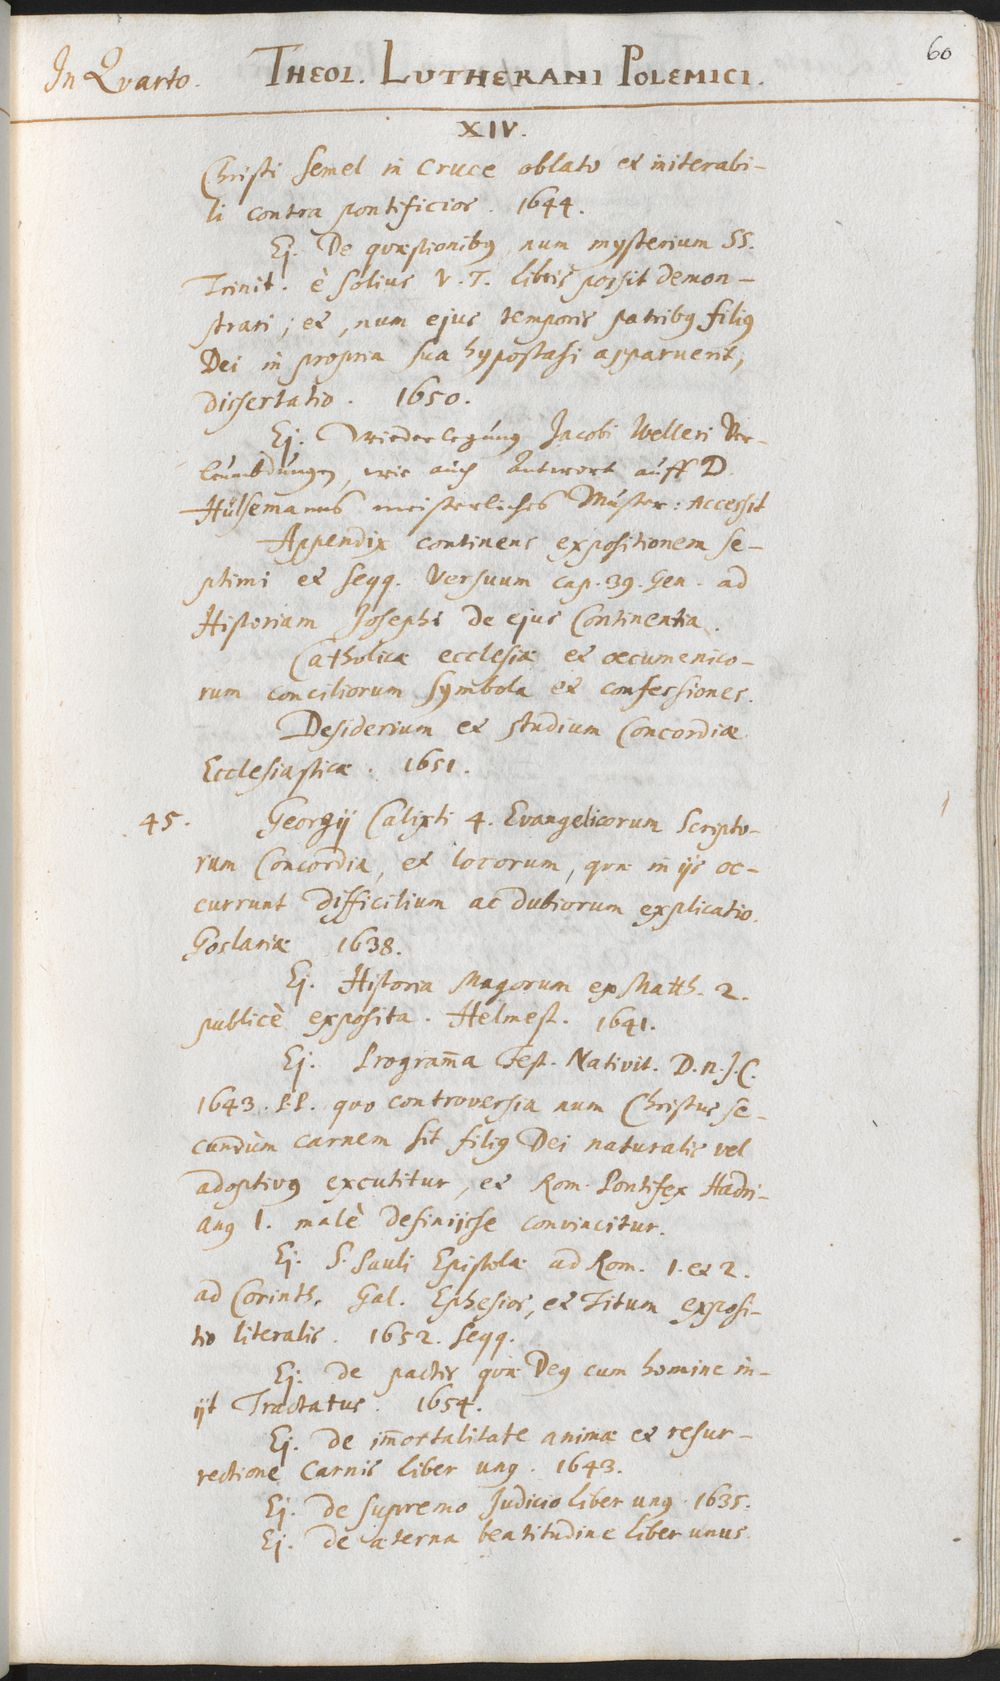 60
In Qvarto. THEOL. LUTHERANI POLEMICI.
XIV.
Christi semel in cruce oblato et initerabi-
li contra pontificios. 1644.
Ej. De qvæstionibg num mysterium SS.
Trinit. è solius V. T. libris possit demon-
strari; et, num ejus temporis patribg filig
Dei in propria sua hypostasi apparuerit,
dissertatio. 1650.
Ej. Wiederlegung Jacobi Welleri Ver-
leumbdungen, wie auch Antwort auff D.
Hülsemanns meisterliches Muster: Accessit
Appendix continens expositionem se-
ptimi et seqq. versuum cap. 39. Gen. ad
Historiam Josephi de ejus Continentia.
Catholicæ ecclesiæ et œcumenico-
rum conciliorum symbola et confessiones.
Desiderium et studium Concordiæ
Ecclesiasticæ. 1651.
45. Georgij Calixti 4. Evangelicorum Scripto-
rum Concordia, et locorum, qvæ in ijs oc-
currunt difficilium ac dubiorum explicatio.
Goslariæ 1638.
Ej. Historia Magorum ex Matth. 2.
publicè exposita. Helmest. 1641.
Ej. Program̄a Fest. Nativit. D. n. J. C.
1643. P.P. quo controversia num Christus se-
cundùm carnem sit filig Dei naturalis vel
adoptivg excutitur, et Rom. Pontifex Hadri-
ang I. malè definijsse convincitur.
Ej. S. Pauli Epistolæ ad Rom. 1. et 2.
ad Corinth. Gal. Ephesios, et Titum exposi-
tio literalis. 1652. seqq.
Ej. de pactis qvæ Deg cum homine in-
ijt Tractatus. 1654.
Ej. de im̄ortalitate animæ et resur-
rectione carnis liber ung. 1643.
Ej. de supremo Judicio liber ung. 1635.
Ej. de æterna beatitudine liber unus.